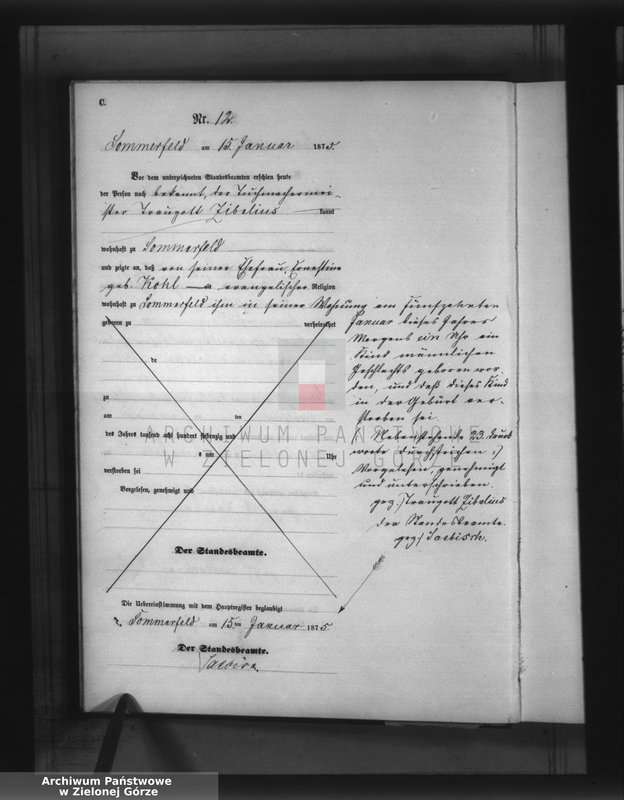 C.
Nr. 12.
Sommerfeld am 15. Januar 1875.
Vor dem unterzeichneten Standesbeamten erschien heute
der Person nach bekannt, der Tuchmachermei-
ster Traugott Zibelius kannt
wohnhaft zu Sommerfeld
und zeigte an, daß von seiner Ehefrau, Ernestine
geb. Kohl alt evangelischer Religion
wohnhaft zu Sommerfeld ihm in seiner Wohnung am fünfzehnten
geboren zu verheirathet
de
zu
am ten
des Jahres tausend acht hundert siebenzig und
um Uhr
verstorben sei
Vorgelesen, genehmigt und
Der Standesbeamte.
Januar dieses Jahres
Morgens ein Uhr ein
Kind männlichen
Geschlechts geboren wor-
den, und daß dieses Kind
in der Geburt ver-
storben sei.
Nebenstehende 23 Druck
worte durchstrichen :)
Vorgelesen, genehmigt
und unterschrieben.
gez:) Traugott Zibelius
Der Standesbeamte.
gez:)
Die Uebereinstimmung mit dem Hauptregister beglaubigt
Sommerfeld am 15ten Januar 1875
Der Standesbeamte.
ARCHIWUM PAŃSTWOWE
W ZIELONEJ GÓRZE
Archiwum Państwowe
w Zielonej Górze